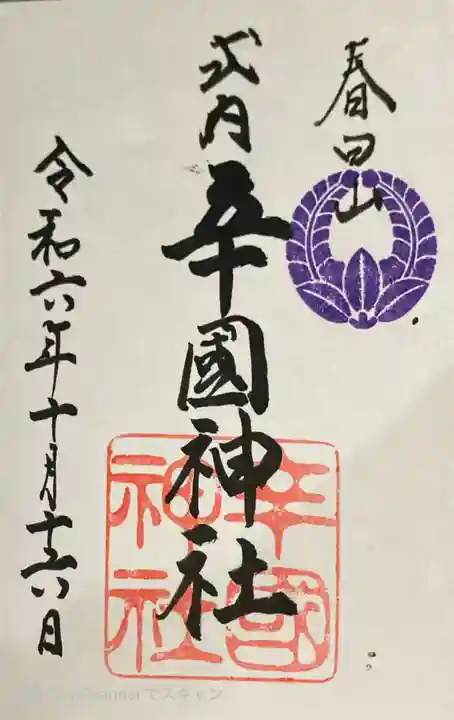 春日山
式内
辛國神社
令和六年十月十六日
辛國
神社
でスキャン